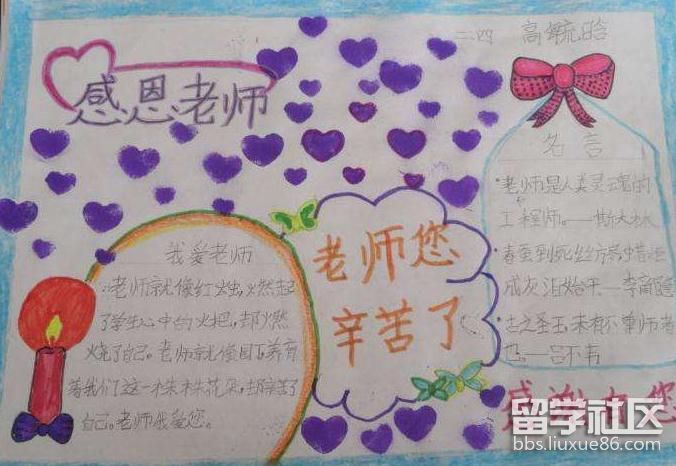 二四
感恩老师
名言
·老师是人类灵魂的
工程师。——斯大林
·春蚕到死丝方尽蜡炬
成灰泪始干——李商隐
·古之圣王,未有不尊师者
也——吕不韦
我爱老师
老师就像红烛,燃起
了学生心中的火把,却燃
烧了自己。老师就像园丁,养育
着我们这一株株花朵,却辛苦了
自己。老师我爱您。
老师您
辛苦了
感谢有您
留学社区
bbs.liuxue86.com